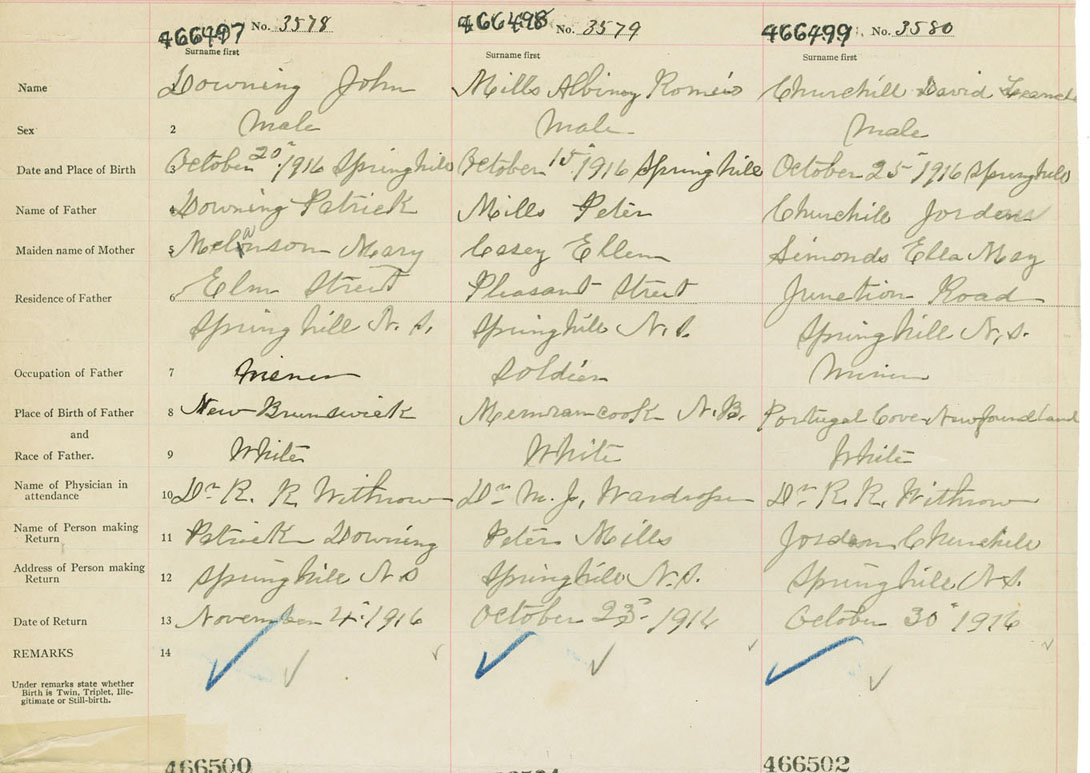 466497 No. 3578 466498 No. 3579 466499 No. 3580
Surname first Surname first Surname first
Name Downing John Mills Albiney Roméo Churchill David
Sex 2 male male male
Date and Place of Birth October 20" 1916 Springhill October 15" 1916 Springhill October 25" 1916 Springhill
Name of Father 4 Downing Patrick Mills Peter Churchill Jorden
Maiden name of Mother 5 Mary Casey Ellen Simonds Ella May
Residence of Father 6 Elm Street Pleasant Street Junction Road
Springhill N. S. Springhill N. S. Springhill N. S.
Occupation of Father 7 miner Soldier miner
Place of Birth of Father 8 New Brunswick Memramcook N. B. Portugal Cove Newfoundland
and
Race of Father. 9 White White White
Name of Physician in
attendance 10 Dr R. R Withrow Dr M. J. Wardrope Dr R. R. Withrow
Name of Person making
Return 11 Patrick Downing Peter Mills Jorden Churchill
Address of Person making
Return 12 Springhill N S Springhill N. S. Springhill N. S.
Date of Return 13 November 4" 1916 October 23" 1916 October 30" 1916
REMARKS 14
Under remarks state whether
Birth is Twin, Triplet, Ille-
gitimate or Still-birth.
466500 466502